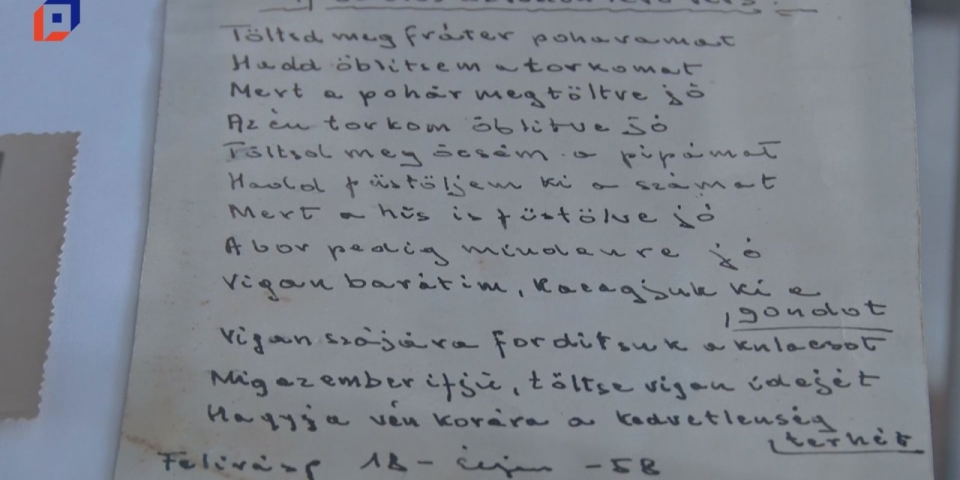 Töltsd meg fráter poharamat
Hadd öblitsem a torkomat
Mert a pohár megtöltve jó
Az én torkom öblitve jó
Töltsd meg öcsém a pipámat
Hadd füstöljem ki a számat
Mert a hús is füstölve jó
A bor pedig mindenre jó
Vigan barátim, kacagjuk ki a
gondot
Vigan szájára forditsuk a kulacsot
Mig az ember ifjú, töltse vigan idejét
Hagyja vén korára a kedvetlenség
terhét
18 - -58